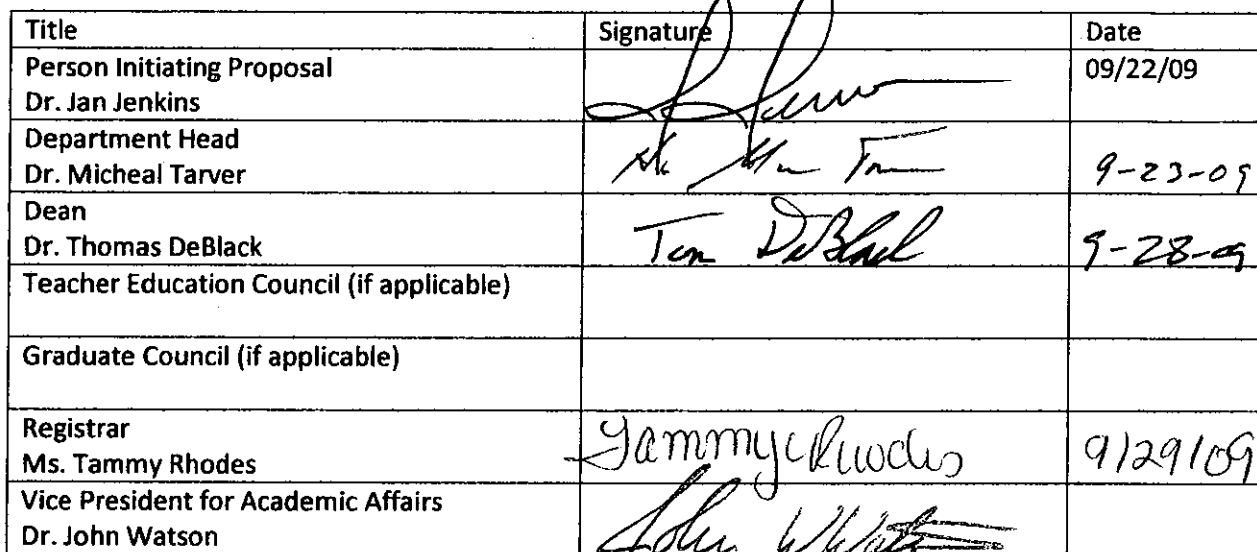 Title Signature Date
Person Initiating Proposal 09/22/09
Dr. Jan Jenkins
Department Head
Dr. Micheal Tarver 9-23-09
Dean
Dr. Thomas DeBlack Tom DeBlack 9-28-09
Teacher Education Council (if applicable)
Graduate Council (if applicable)
Registrar Tammy Rhodes 9/29/09
Ms. Tammy Rhodes
Vice President for Academic Affairs
Dr. John Watson John W Watson